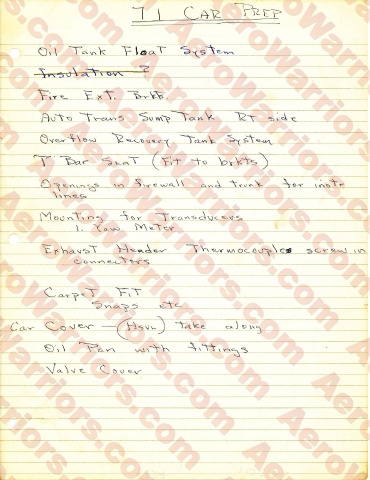 71 CAR PREP
Oil Tank Float System
Insulation ?
Fire Ext. Brkts.
Auto Trans Sump Tank Rt side
Overflow Recovery Tank System
T' Bar Seat (Fit to brkts)
Openings in firewall and trunk for instr
lines
Mounting for Transducers
1. Yaw Meter
Exhaust Header Thermocouple screw in
connectors
Carpet Fit
Snaps etc
Car Cover — ( ) take along
Oil Pan with fittings
Valve Cover
AeroWarriors.com